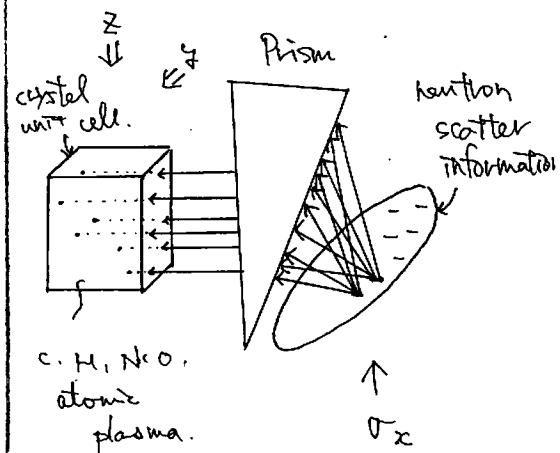 Z
y
Prism
crystel
unit cell.
neutron
scatter
information
C. H, N.O.
atomic
plasma.
σx